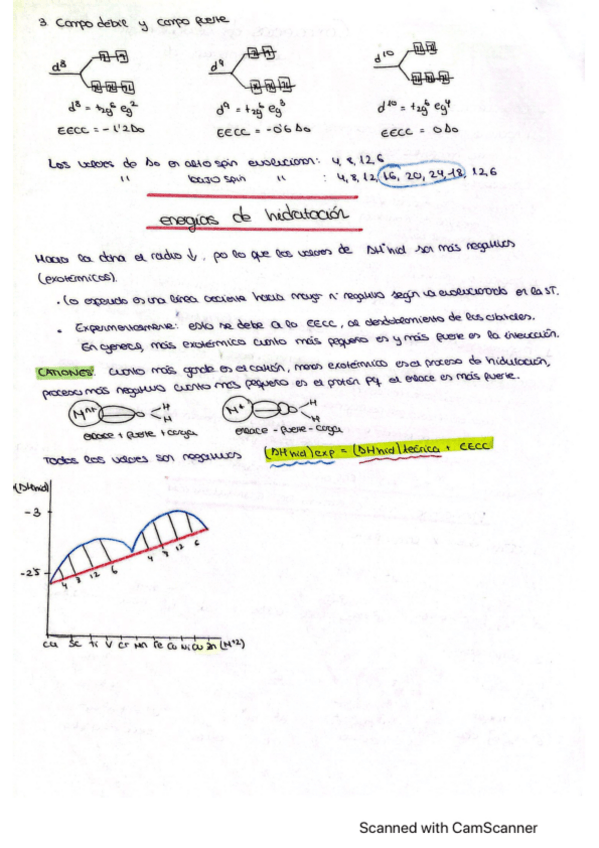 3 Campo debil y campo fuerte
d8 d9 d10
d8 = t2g6 eg2 d9 = t2g6 eg3 d10 = t2g6 eg4
EECC = -1'2Δo EECC = -0'6Δo EECC = 0Δo
Los valores de Δo en alto spin evolucionan: 4, 8, 12, 6
" bajo spin " : 4, 8, 12, 16, 20, 24, 18, 12, 6
energías de hidratación
Hacia la dcha el radio ↓, po lo que los valores de ΔHhid son más negativos
(exotérmicos).
· Lo esperado es una línea creciente hacia mayor nº negativo según va evolucionando en la ST.
· Experimentalmente: esto se debe a la EECC, al desdoblamiento de los orbitales.
En general, más exotérmico cuanto más pequeño es y más fuerte es la interacción.
CATIONES: cuanto más grande es el catión, menos exotérmico es el proceso de hidratación,
proceso más negativo cuanto mas pequeño es el protón pq el enlace es más fuerte.
Mn+ O H H M+ O H H
enlace + fuerte + carga enlace - fuerte - carga
Todos los valores son negativos (ΔHhid)exp = (ΔHhid)teórica + EECC
(ΔHhid)
-3
-2'5
4 8 12 6 4 8 12 6
Ca Sc Ti V Cr Mn Fe Co Ni Cu Zn (M+2)
Scanned with CamScanner